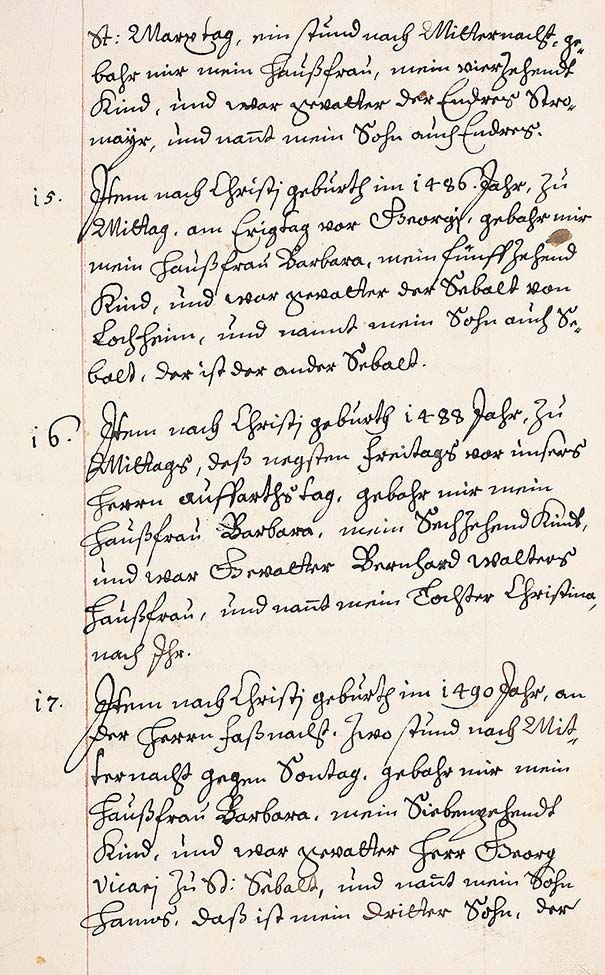 St: Marxtag, ein stund nach Mitternacht, ge-
bahr mir mein Haußfrau, mein vierzehendt
Kind, und war gevatter der Endres Stro-
mayr, und nannt mein Sohn auch Endres.
15. Item nach Christj geburth im 1486. Jahr, zu
Mittag, am Erigtag vor Georgj, gebahr mir
mein Haußfrau Barbara, mein fünffzehend
Kind, und war gevatter der Sebalt von
Lochheim, und nannt mein Sohn auch Se-
balt, der ist der ander Sebalt.
16. Item nach Christj geburth 1488 Jahr, zu
Mittags, deß negsten freitags vor unsers
Herrn auffarthstag, gebahr mir mein
Haußfrau Barbara, mein Sechzehend Kindt,
und war Gevatter Bernhard Walters
Haußfrau, und nannt mein Tochter Christina,
nach Ihr.
17. Item nach Christj geburth im 1490 Jahr, an
der Herrn faßnacht, zwo stund nach Mit-
ternacht gegen Sontag, gebahr mir mein
Haußfrau Barbara, mein Siebenzehendt
Kind, und war gevatter Herr Georg
Vicarj zu St: Sebalt, und nannt mein Sohn
Hanns, daß ist mein dritter Sohn, der